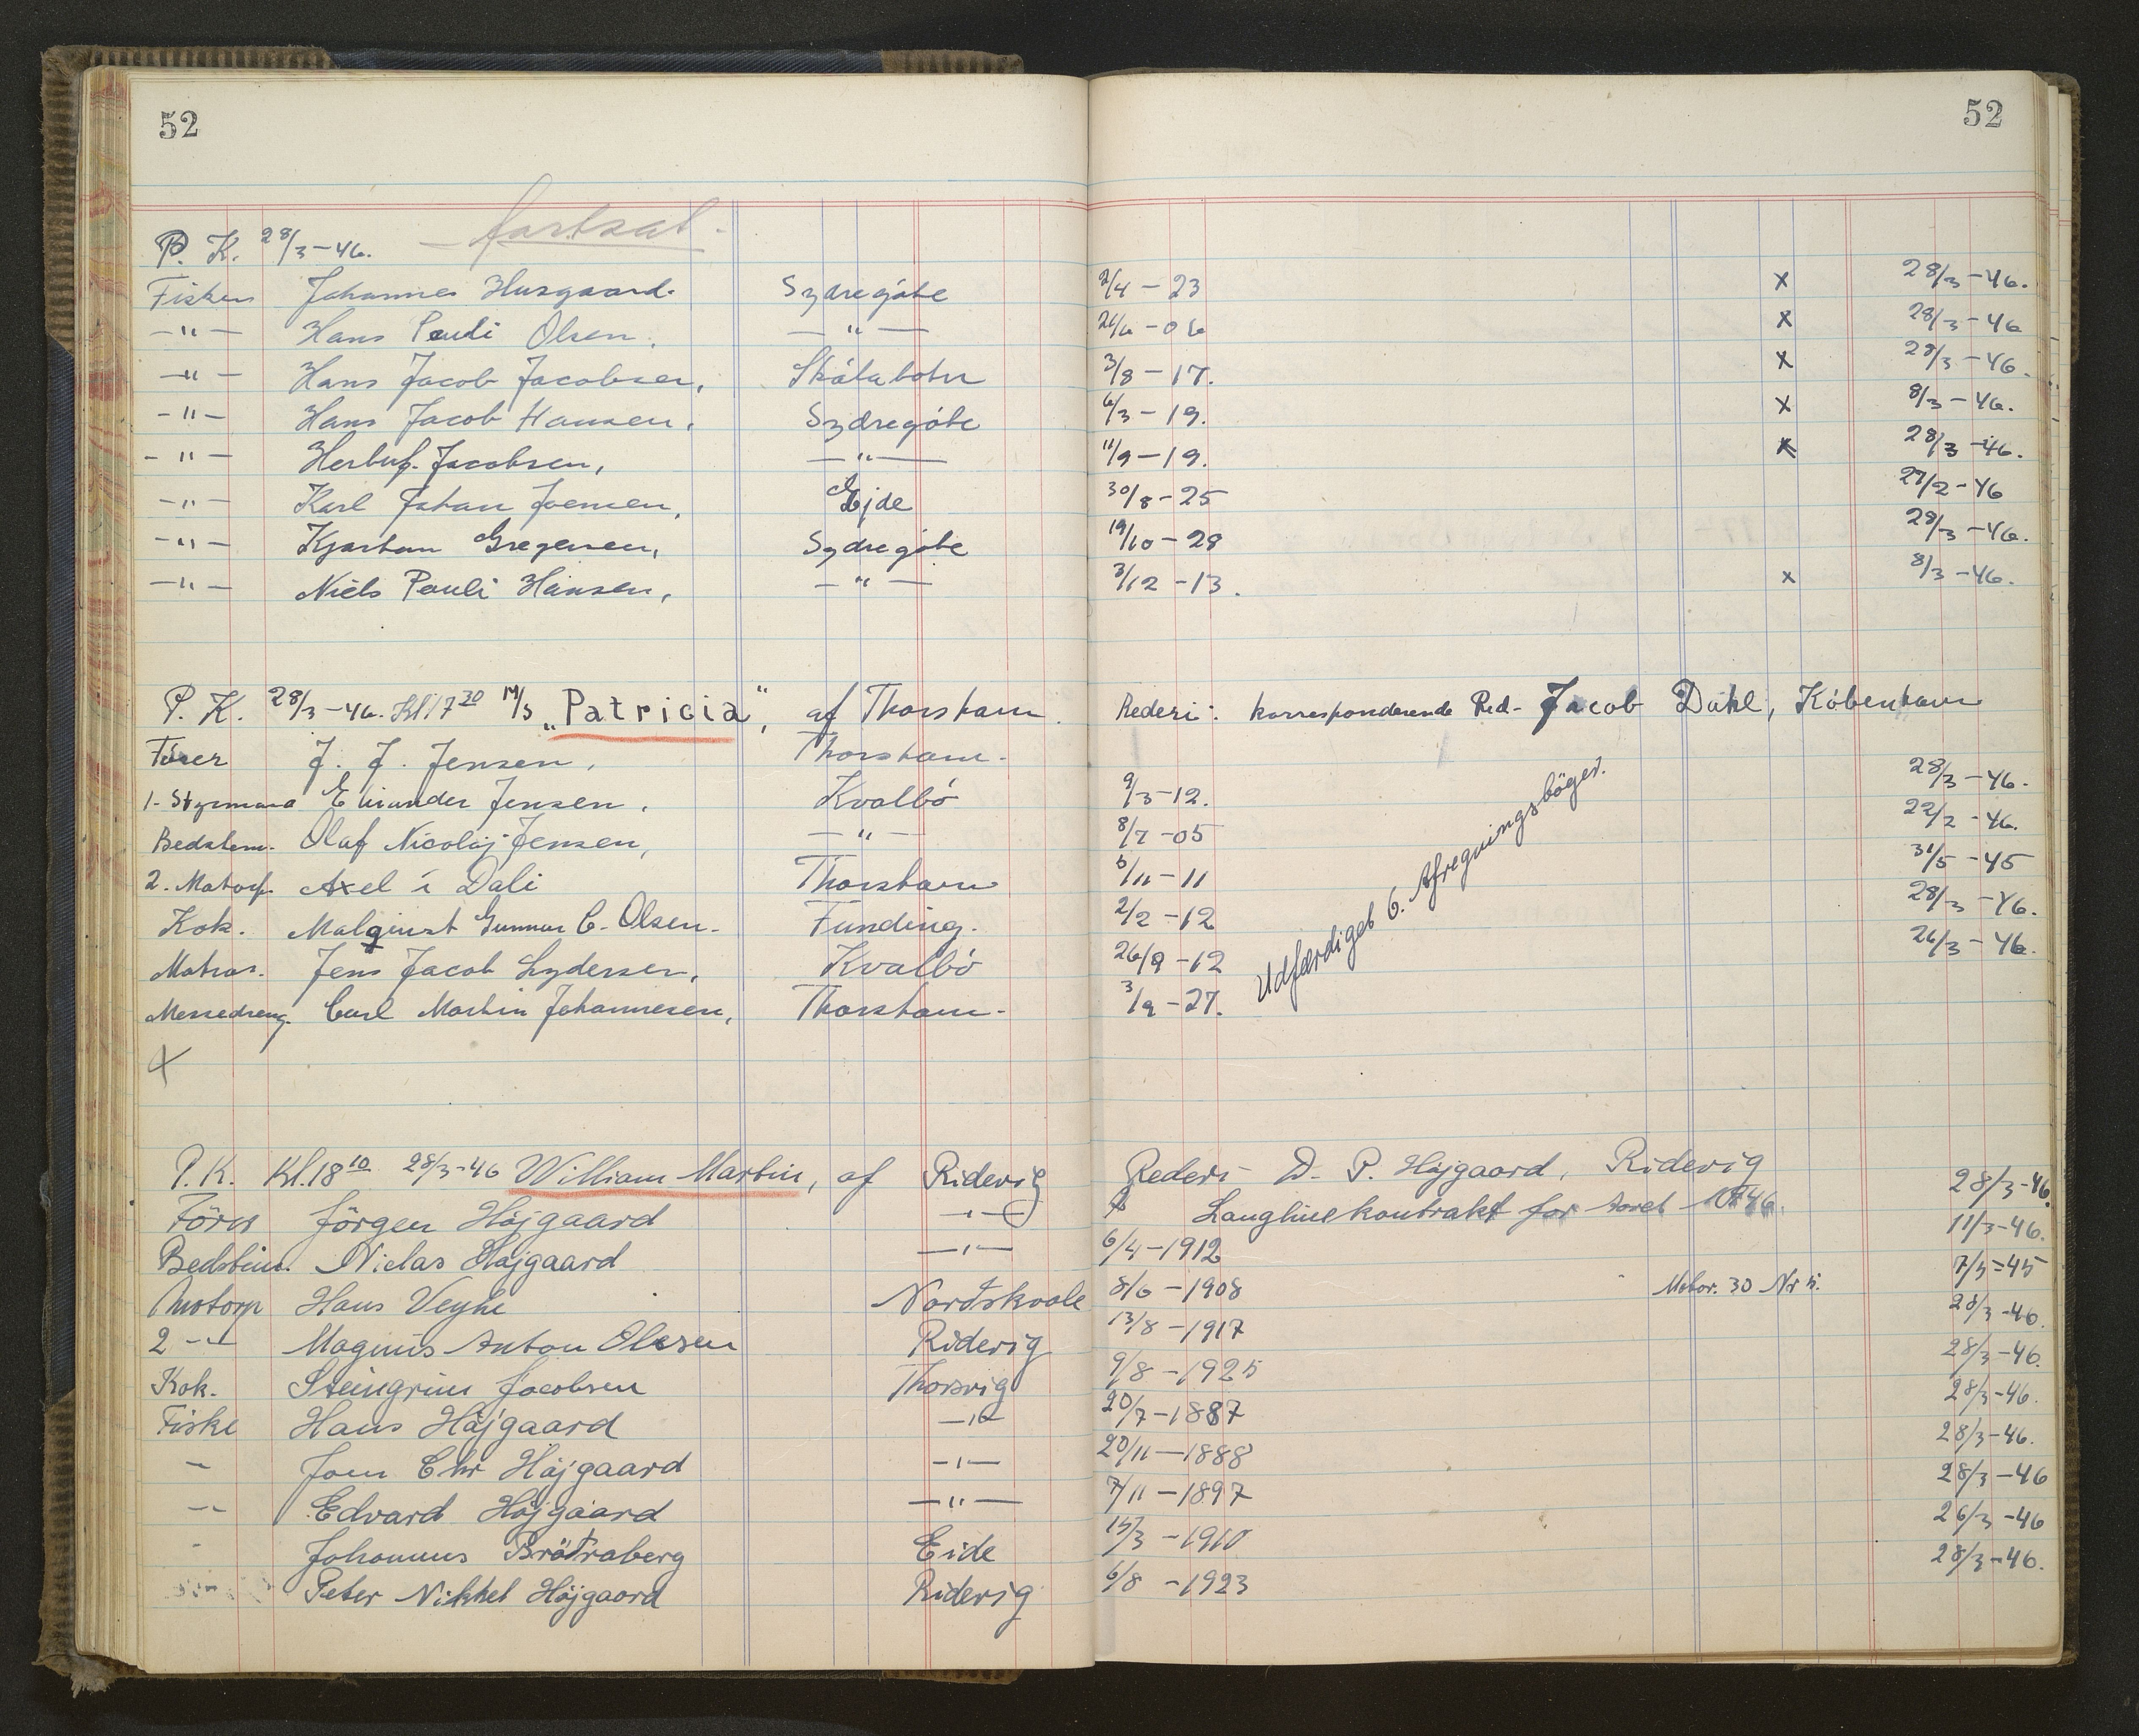 52 52
fortsat.
P. K. 28/3-46.
Fisker Johannes Husgaard. Sydregóte 2/4 - 23 x 28/3-46.
-"- Hans Pauli Olsen, -"- 21/6 -06 x 28/3-46
-"- Hans Jacob Jacobsen, Skálabotn 3/8 - 17. x 28/3-46.
-"- Hans Jacob Hansen, Sydregóte 6/3 - 19. x 8/3-46.
-"- Jacobsen, -"- 11/9-19. x 28/3-46.
-"- Karl Johan Joensen, Ejde 30/8-25 27/2-46
-"- Kjartan Gregersen, Sydregóte 19/10-28 28/3-46.
-"- Niels Pauli Hansen, -"- 3/12-13. x 8/3-46.
P. K. 28/3-46. Kl 17 30 M/S „Patricia“, af Thorshavn. Rederi: korresponderende Red- Jacob Dahl, Köbenhavn
Förer J. J. Jensen, Thorshavn.
1. Styrmand Jensen, Kvalbö 9/3-12. 28/3-46.
Bedstem. Olaf Nicolaj Jensen, -"- 8/7-05 22/2-46.
2. Motorp. Axel í Dali Thorshavn 5/11-11 31/5-45
Kok. Gunnar C. Olsen. Funding. 2/2-12 28/3-46.
Matros. Jens Jacob Lydersen, Kvalbö 26/9-12 26/3-46.
Messedreng. Carl Martin Johannesen, Thorshavn. 3/9-27.
Udfærdiget 6. Afregningsböger.
x
P.K. Kl.18 10 28/3-46 William Martin, af Ridevig Rederi D. P. Höjgaard, Ridevig
Förer Jörgen Höjgaard -"- Langlinekontrakt for Aaret 1946. 28/3-46.
Bedstem. Niclas Höjgaard -"- 6/4-1912 11/3-46.
Motorp Hans Veyhe Nordskaale 8/6-1908 Motor. 30 Nr 5. 7/5-45
2 -"- Magnus Anton Olesen Ridevig 13/8-1917 28/3-46.
Kok. Steingrim Jacobsen Thorsvig 9/8-1925 28/3-46.
Fiske Hans Höjgaard -"- 20/7-1887 28/3-46.
- Joen Chr Höjgaard -"- 20/11-1888 28/3-46.
-"- Edvard Höjgaard -"- 7/11-1897 28/3-46
- Johannus Brötraberg Eide 15/3-1910 26/3-46
Peter Nikkel Höjgaard Ridevig 6/8-1923 28/3-46.